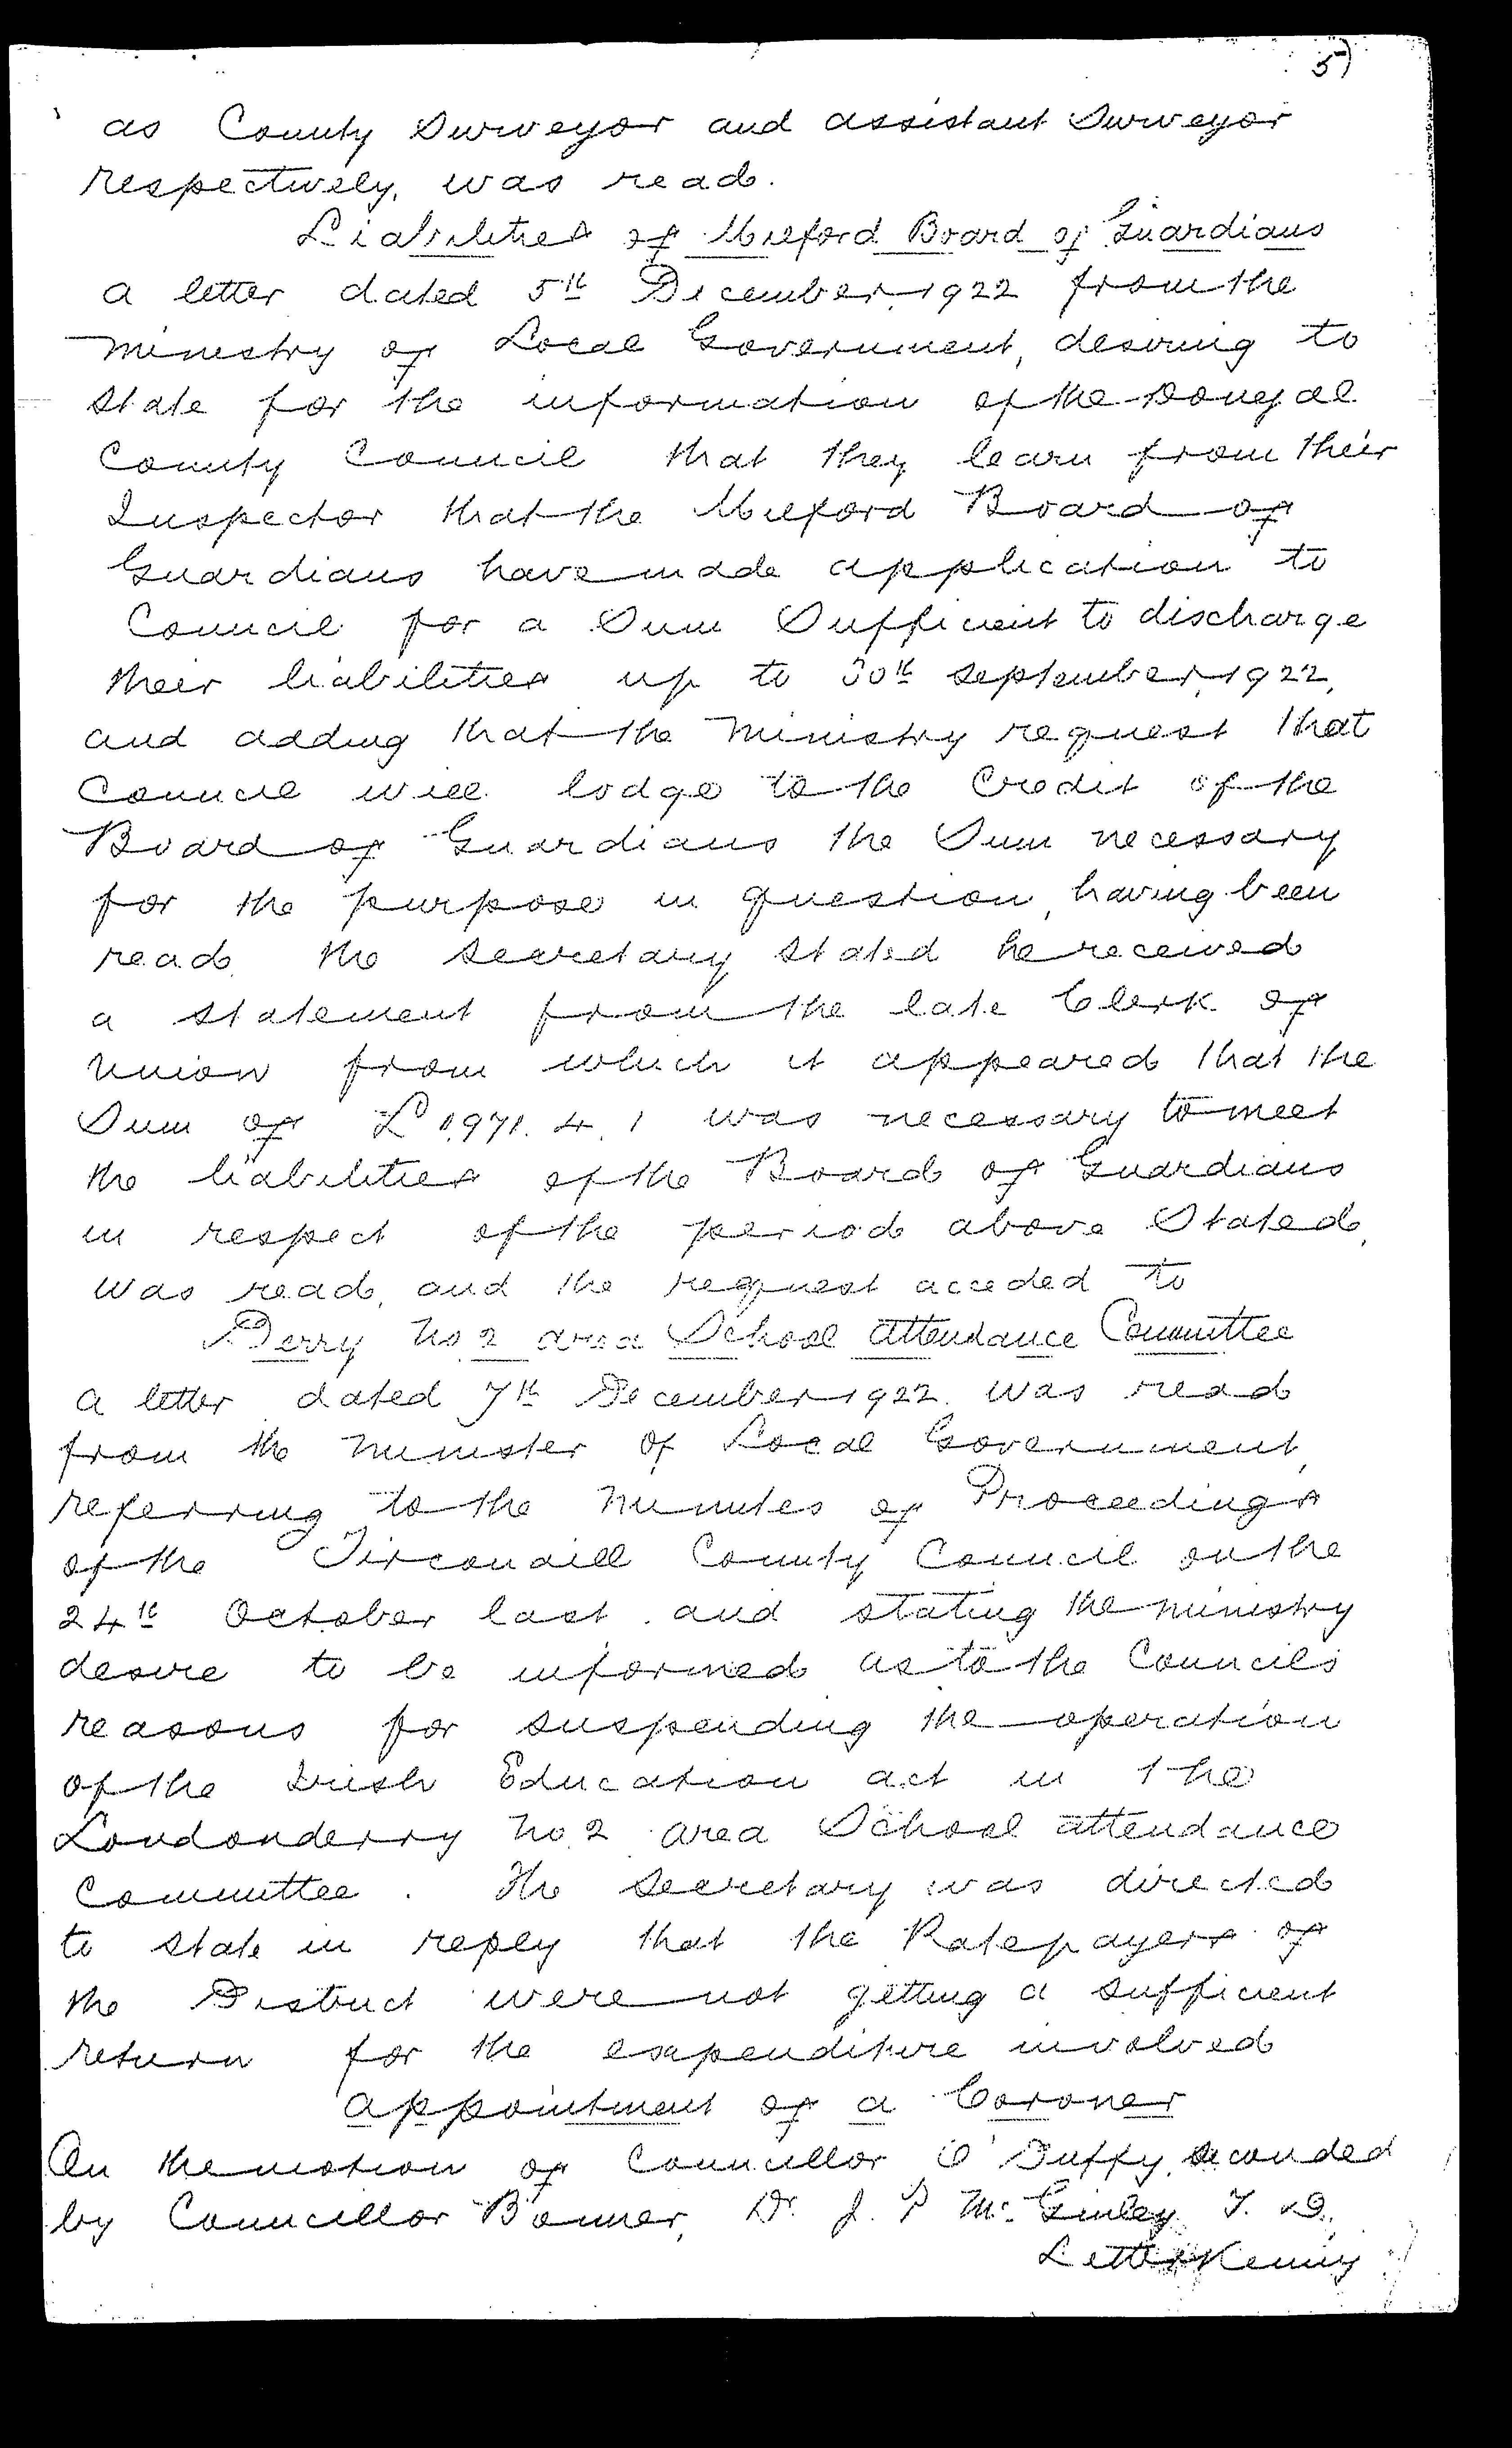 5)
as County Surveyor and assistant Surveyor
respectively, was read.
Liabilities of Milford Board of Guardians
a letter dated 5th December, 1922 from the
ministry of Local Government, desiring to
state for the information of the Donegal
County Council that they learn from their
Inspector that the Milford Board of
Guardians have made application to
Council for a Sum Sufficient to discharge
their liabilities up to 30th September, 1922,
and adding that the ministry request that
Council will lodge to the Credit of the
Board of Guardians the Sum necessary
for the purpose in question, having been
read, the secretary stated he received
a statement from the late Clerk of
Union from which it appeared that the
Sum of £ 1971. 4. 1 was necessary to meet
the liabilities of the Board of Guardians
in respect of the period above Stated,
was read, and the request acceded to
Derry No 2 area School attendance Committee
a letter dated 7th December 1922 was read
from the minister of Local Government,
referring to the minutes of Proceedings
of the Tirconaill County Council on the
24th October last. and stating the ministry
desire to be informed as to the Councils
reasons for suspending the operation
of the Irish Education act in the
Londonderry No. 2 area School attendance
Committee. The secretary was directed
to state in reply that the Ratepayers of
the District were not getting a sufficient
return for the expenditure involved
appointment of a Coroner
On the motion of Councillor O'Duffy, seconded
by Councillor Bonner, Dr. J. P McGinley T. D.,
LetterKenny